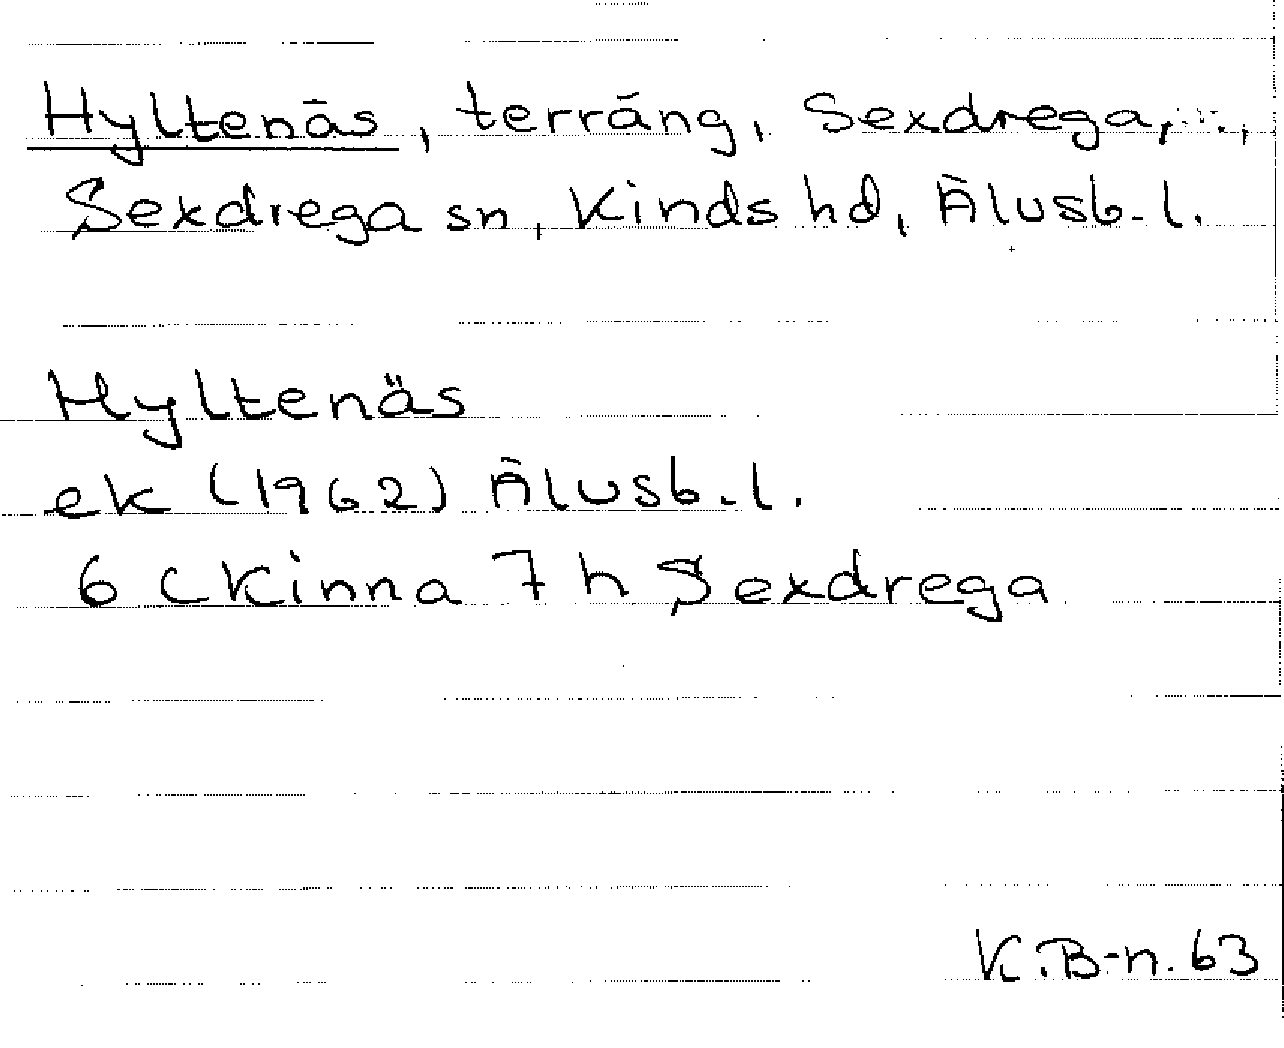 Hyltenäs, terräng, Sexdrega,
Sexdrega sn, Kinds hd, Älvsb. l.
Hyltenäs
ek (1962) Älvsb. l.
6 C Kinna 7 h Sexdrega
K.B-n. 63